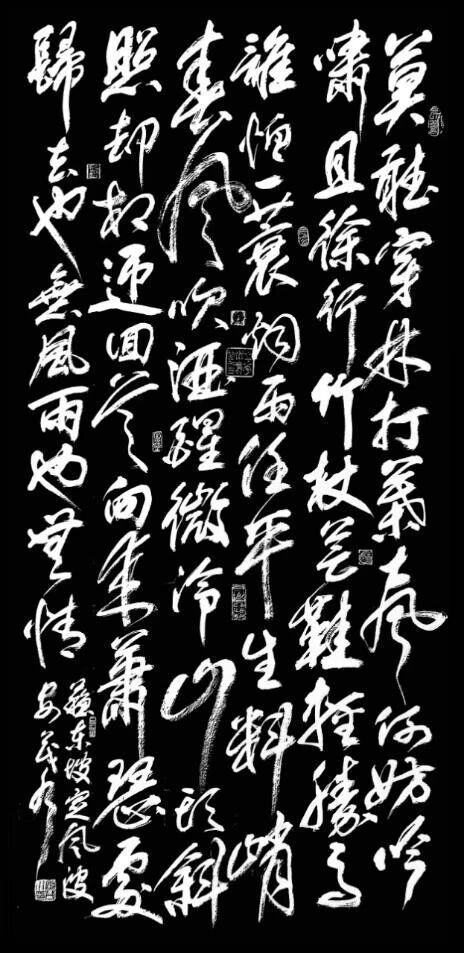 莫聽穿林打葉聲何妨吟
嘯且徐行竹杖芒鞋輕勝馬
誰怕一蓑烟雨任平生料峭
春風吹酒醒微冷山頭斜
照却相迎回首向來蕭瑟處
歸去也無風雨也無情
蘇東坡定風波